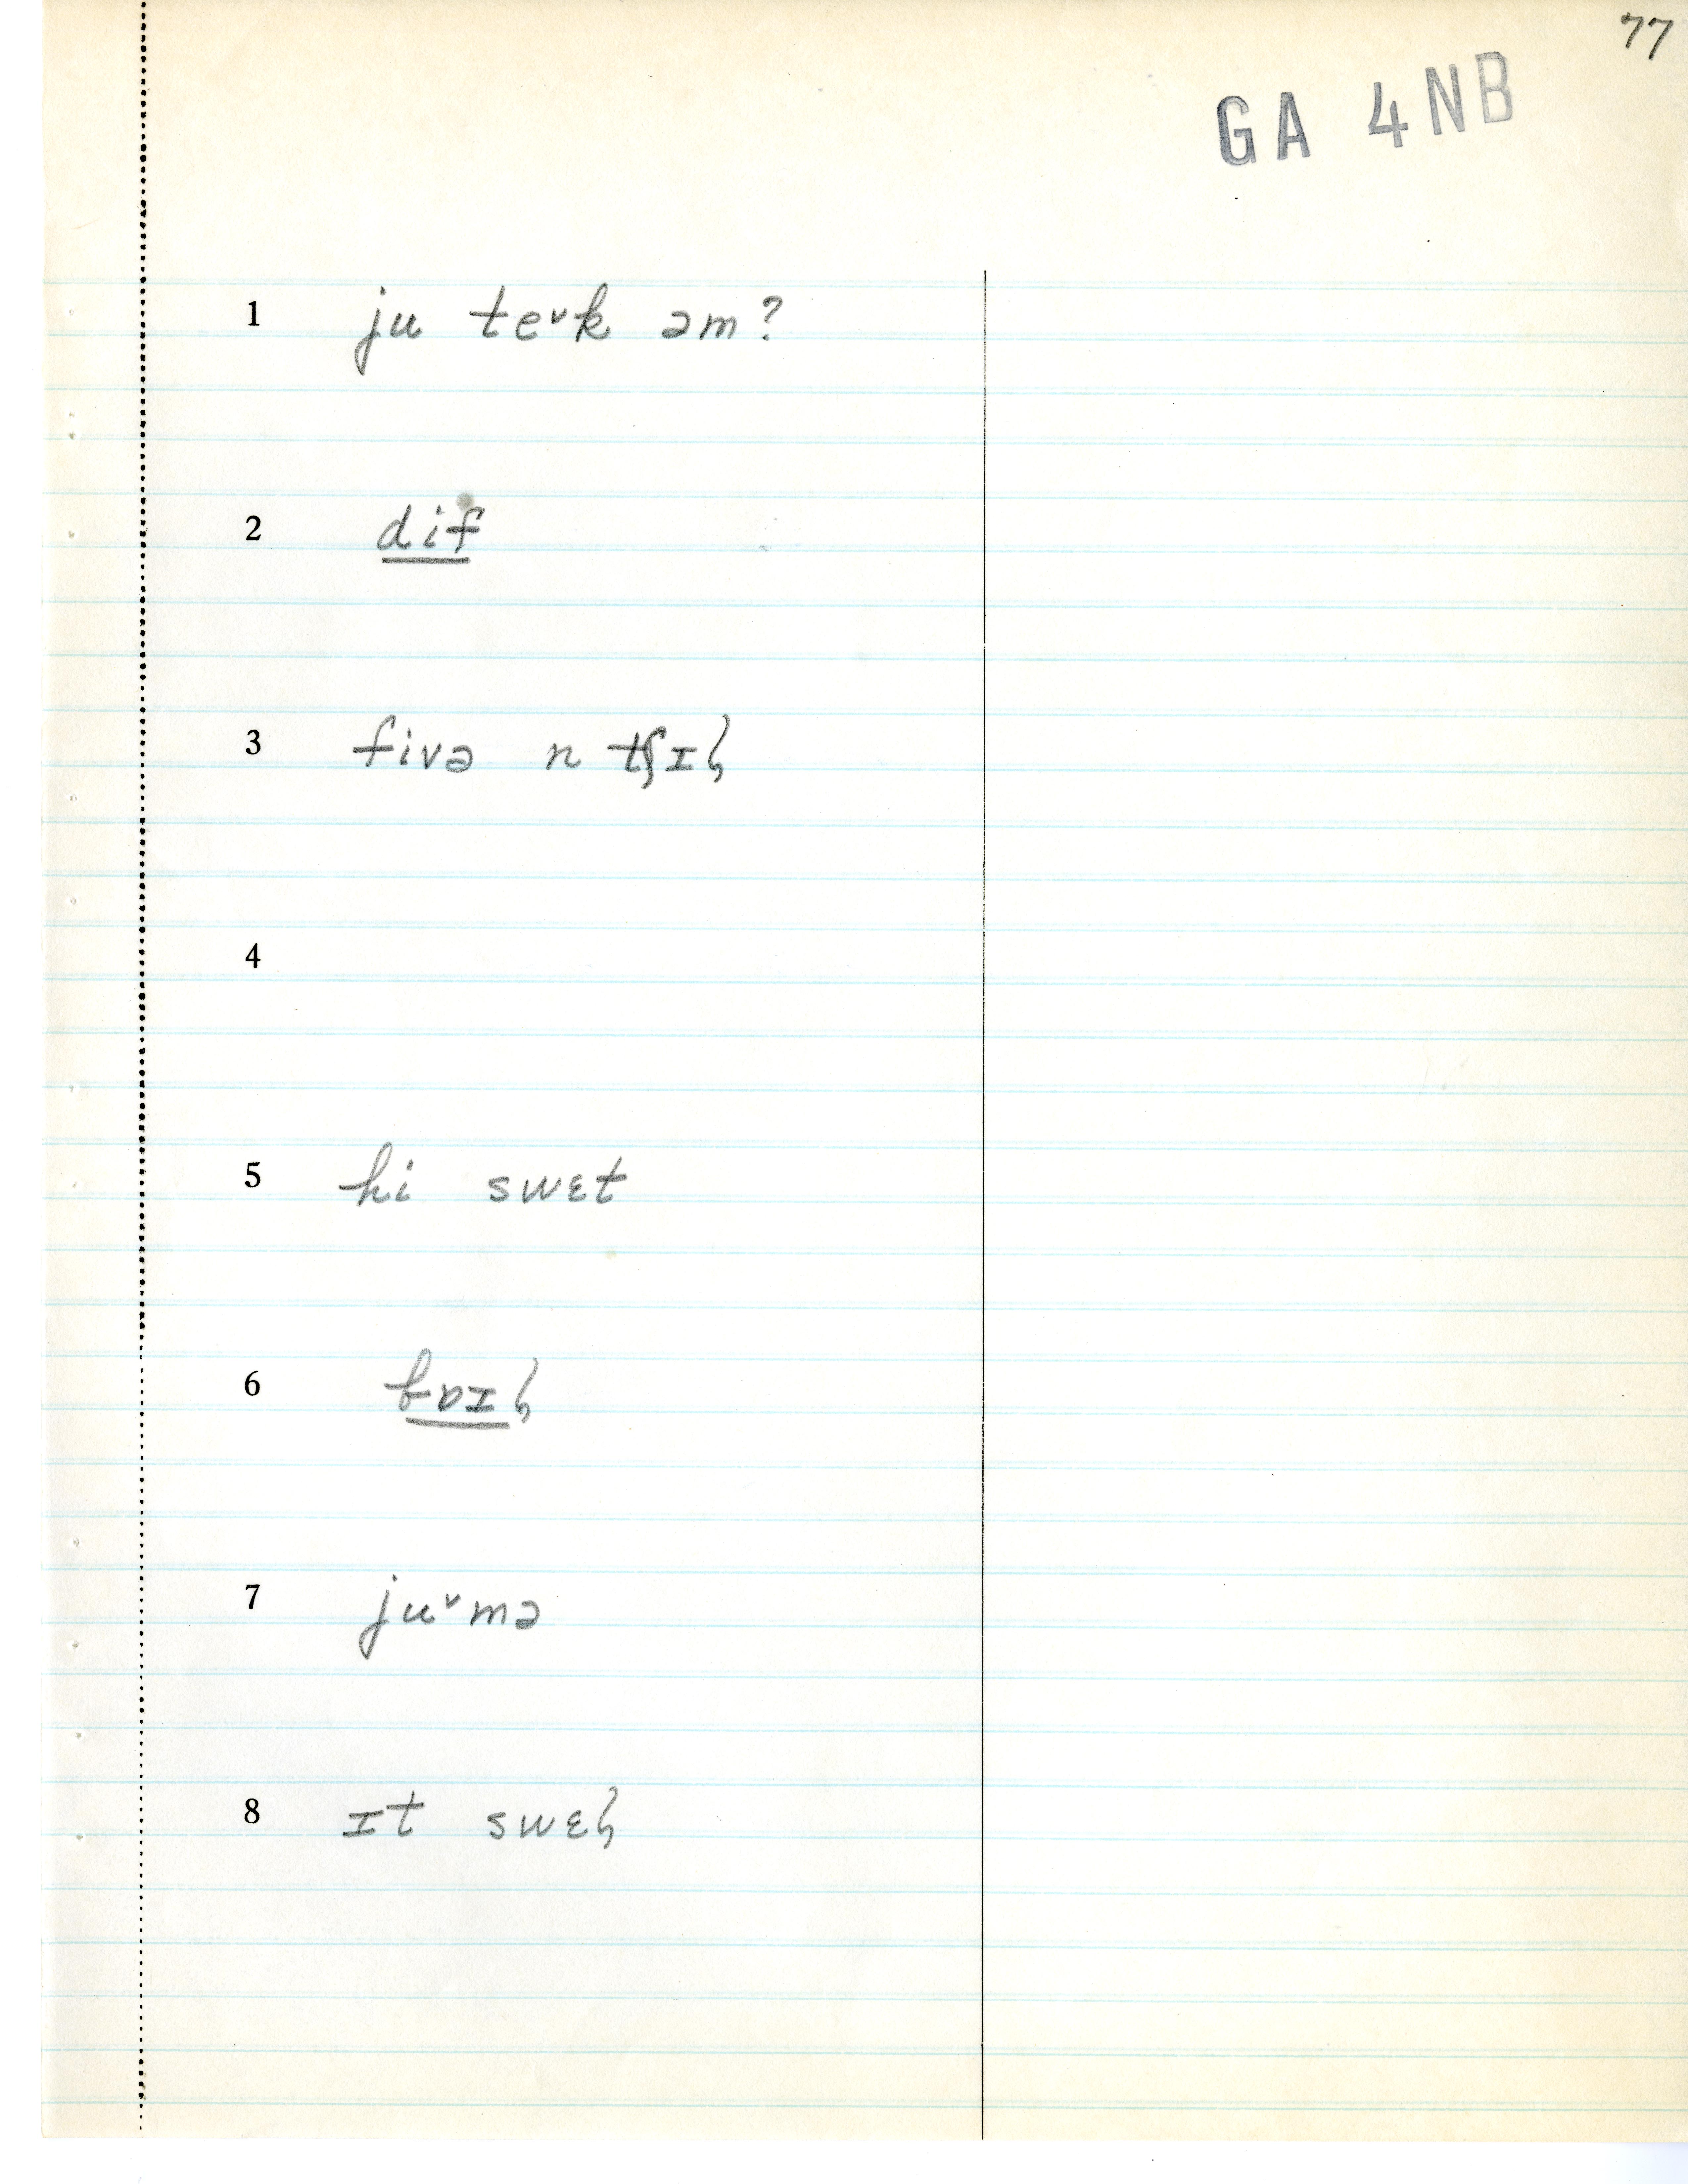 77
GA 4NB
1 ju te˅k əm?
2 dif
3 fivə n tʃɪɫ
4
5 hi swɛt
6 bɒɪɫ
7 ju˅mə
8 ɪt swɛɫ